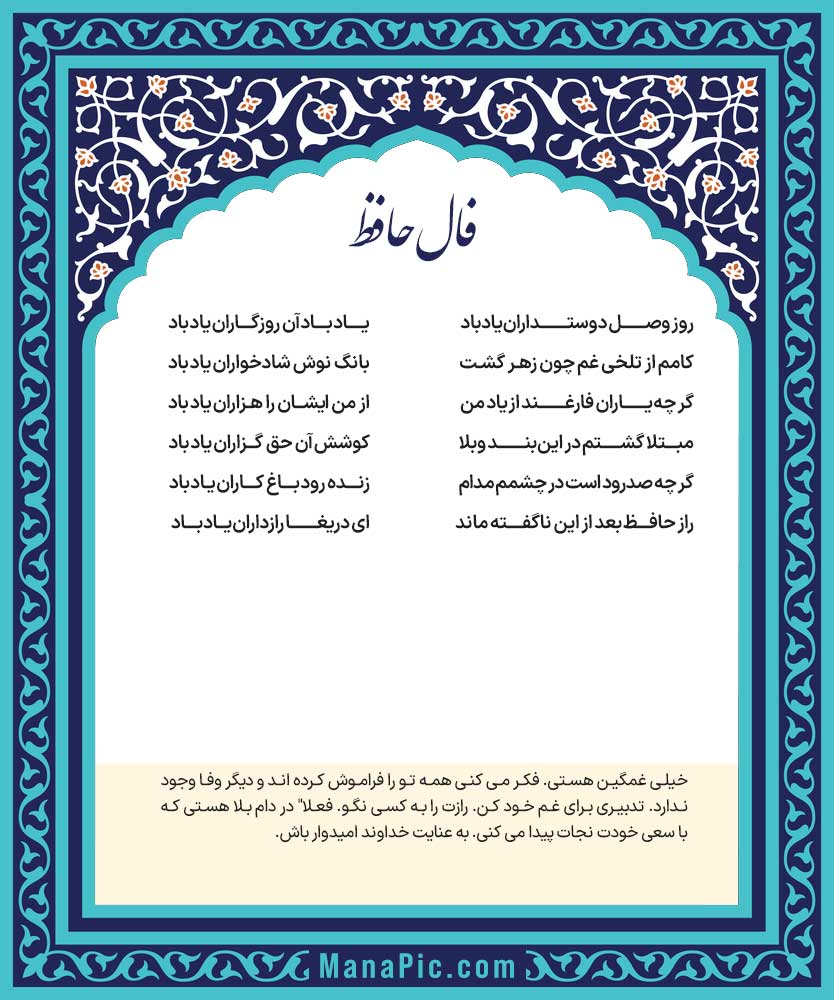 فال حافظ
روز وصل دوستداران یاد باد یاد باد آن روزگاران یاد باد
کامم از تلخی غم چون زهر گشت بانگ نوش شادخواران یاد باد
گر چه یاران فارغند از یاد من از من ایشان را هزاران یاد باد
مبتلا گشتم در این بند و بلا کوشش آن حق گزاران یاد باد
گر چه صد رود است در چشمم مدام زنده رود باغ کاران یاد باد
راز حافظ بعد از این ناگفته ماند ای دریغا رازداران یاد باد
خیلی غمگین هستی. فکر می کنی همه تو را فراموش کرده اند و دیگر وفا وجود
ندارد. تدبیری برای غم خود کن. رازت را به کسی نگو. فعلا" در دام بلا هستی که
با سعی خودت نجات پیدا می کنی. به عنایت خداوند امیدوار باش.
ManaPic.com